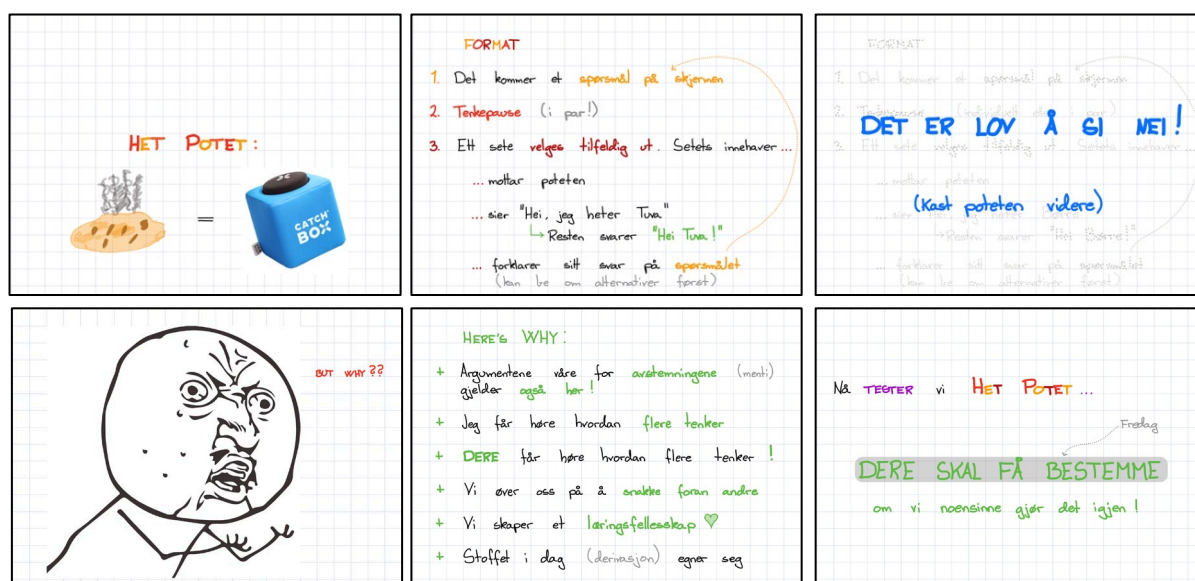 HET POTET:
=
CATCH
BOX
FORMAT
1. Det kommer et spørsmål på skjermen
2. Tenkepause (i par!)
3. Ett sete velges tilfeldig ut. Setets innehaver...
... mottar poteten
... sier "Hei, jeg heter Tuva"
↳ Resten svarer "Hei Tuva!"
... forklarer sitt svar på spørsmålet
(kan be om alternativer først)
FORMAT
1. Det kommer et spørsmål på skjermen
2. Tenkepause
DET ER LOV Å SI NEI!
3. Ett sete velges tilfeldig ut. Setets innehaver...
... mottar poteten
(Kast poteten videre)
... sier "Hei, jeg heter
↳ Resten svarer "Hei Børre!"
... forklarer sitt svar på spørsmålet
(kan be om alternativer først)
BUT WHY??
HERE'S WHY:
+ Argumentene våre for avstemningene (menti)
gjelder også her!
+ Jeg får høre hvordan flere tenker
+ DERE får høre hvordan flere tenker!
+ Vi øver oss på å snakke foran andre
+ Vi skaper et læringsfellesskap ♡
+ Stoffet i dag (derivasjon) egner seg
Nå TESTER vi HET POTET...
Fredag
DERE SKAL FÅ BESTEMME
om vi noensinne gjør det igjen!